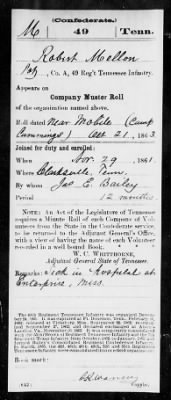 (Confederate.)
M 49 Tenn.
Robert Mellon
Pvt, Co. A, 49 Reg't Tennessee Infantry.
Appears on
Company Muster Roll
of the organization named above.
Roll dated Near Mobile (Camp
Cummings) Oct 21, 1863.
Joined for duty and enrolled:
When Nov. 29, 1861.
Where Clarksville, Tenn.
By whom Jas E. Bailey
Period 12 months
NOTE: An Act of the Legislature of Tennessee
requires a Minute Roll of each Company of Vol-
unteers from the State in the Confederate service
to be returned to the Adjutant General's Office,
with a view of having the name of each Volunteer
recorded in a well bound Book.
W. C. WHITTHORNE,
Adjutant General State of Tennessee.
Remarks: Sick in Hospital at
Enterprise, Miss.
Book mark:
(642)
Copyist.